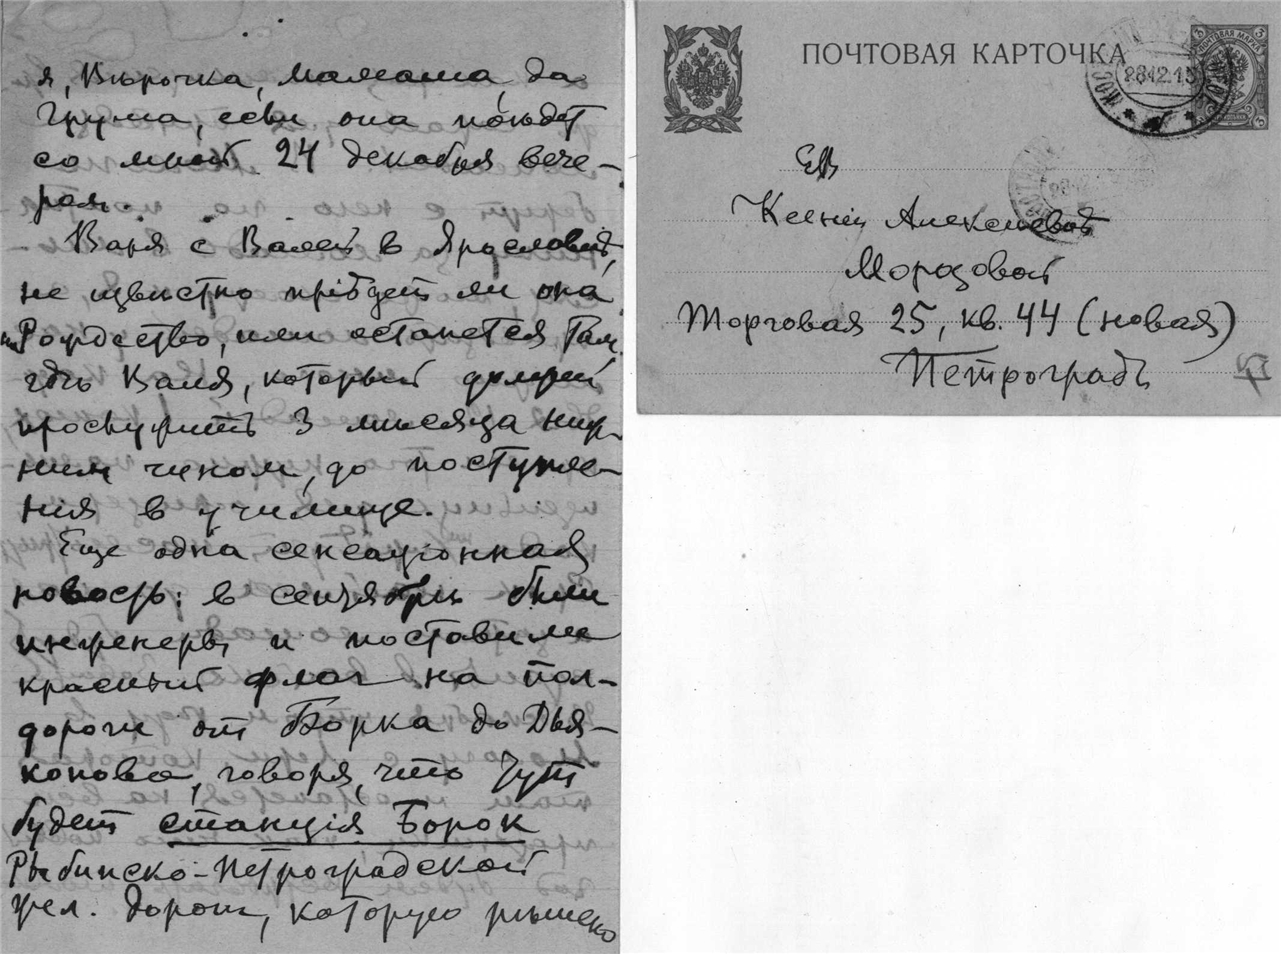 я, Вѣрочка, мамаша, да
Груша, если она поѣдет
со мной 24 декабря вече-
ром.
Варя с Валей в Ярославлѣ,
не извѣстно прiѣдет ли она
на Рождество, или останется там
гдѣ Валя, который должен
прослужить 3 мѣсяца ниж-
ним чином, до поступле-
нiя в училище.
Еще одна сенсацiонная
новость: в сентябрѣ были
инженеры и поставили
красный флаг на пол-
дороги от Борка до Дья-
конова, говоря, что тут
будет станцiя Борок
Рыбинско-Петроградской
жел. дороги, которую рѣшено
ПОЧТОВАЯ КАРТОЧКА
ПОЧТОВАЯ МАРКА
3
28.12.15
ЕВ
Ксенiи Алексѣевнѣ
Морозовой
Торговая 25, кв. 44 (новая)
Петроградъ